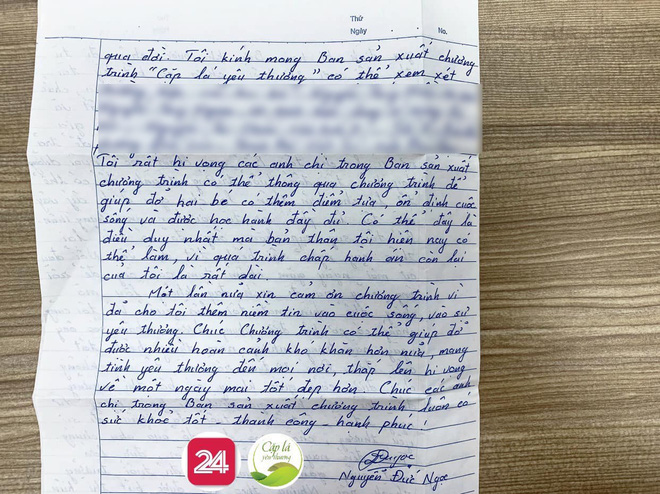 Thứ
Ngày
No.
qua đời. Tôi kính mong Ban sản xuất chương
trình "Cặp lá yêu thương" có thể xem xét
Tôi rất hi vọng các anh chị trong Ban sản xuất
chương trình có thể thông qua chương trình để
giúp đở hai bé có thêm điểm tựa, ổn định cuộc
sống và được học hành đầy đủ. Có thể đây là
điều duy nhất mà bản thân tôi hiện nay có
thể làm, vì quá trình chấp hành án còn lại
của tôi là rất dài.
Một lần nửa xin cảm ơn chương trình vì
đã cho tôi thêm niềm tin vào cuộc sống, vào sự
yêu thương. Chúc Chương trình có thể giúp đở
được nhiều hoàn cảnh khó khăn hơn nửa, mang
tình yêu thương đến mọi nơi, thắp lên hi vọng
về một ngày mai tốt đẹp hơn. Chúc các anh
chị trong Ban sản xuất chương trình, luôn có
sức khoẻ tốt - thành công - hạnh phúc!
Nguyễn Đức Ngọc
24
Cặp lá
yêu thương